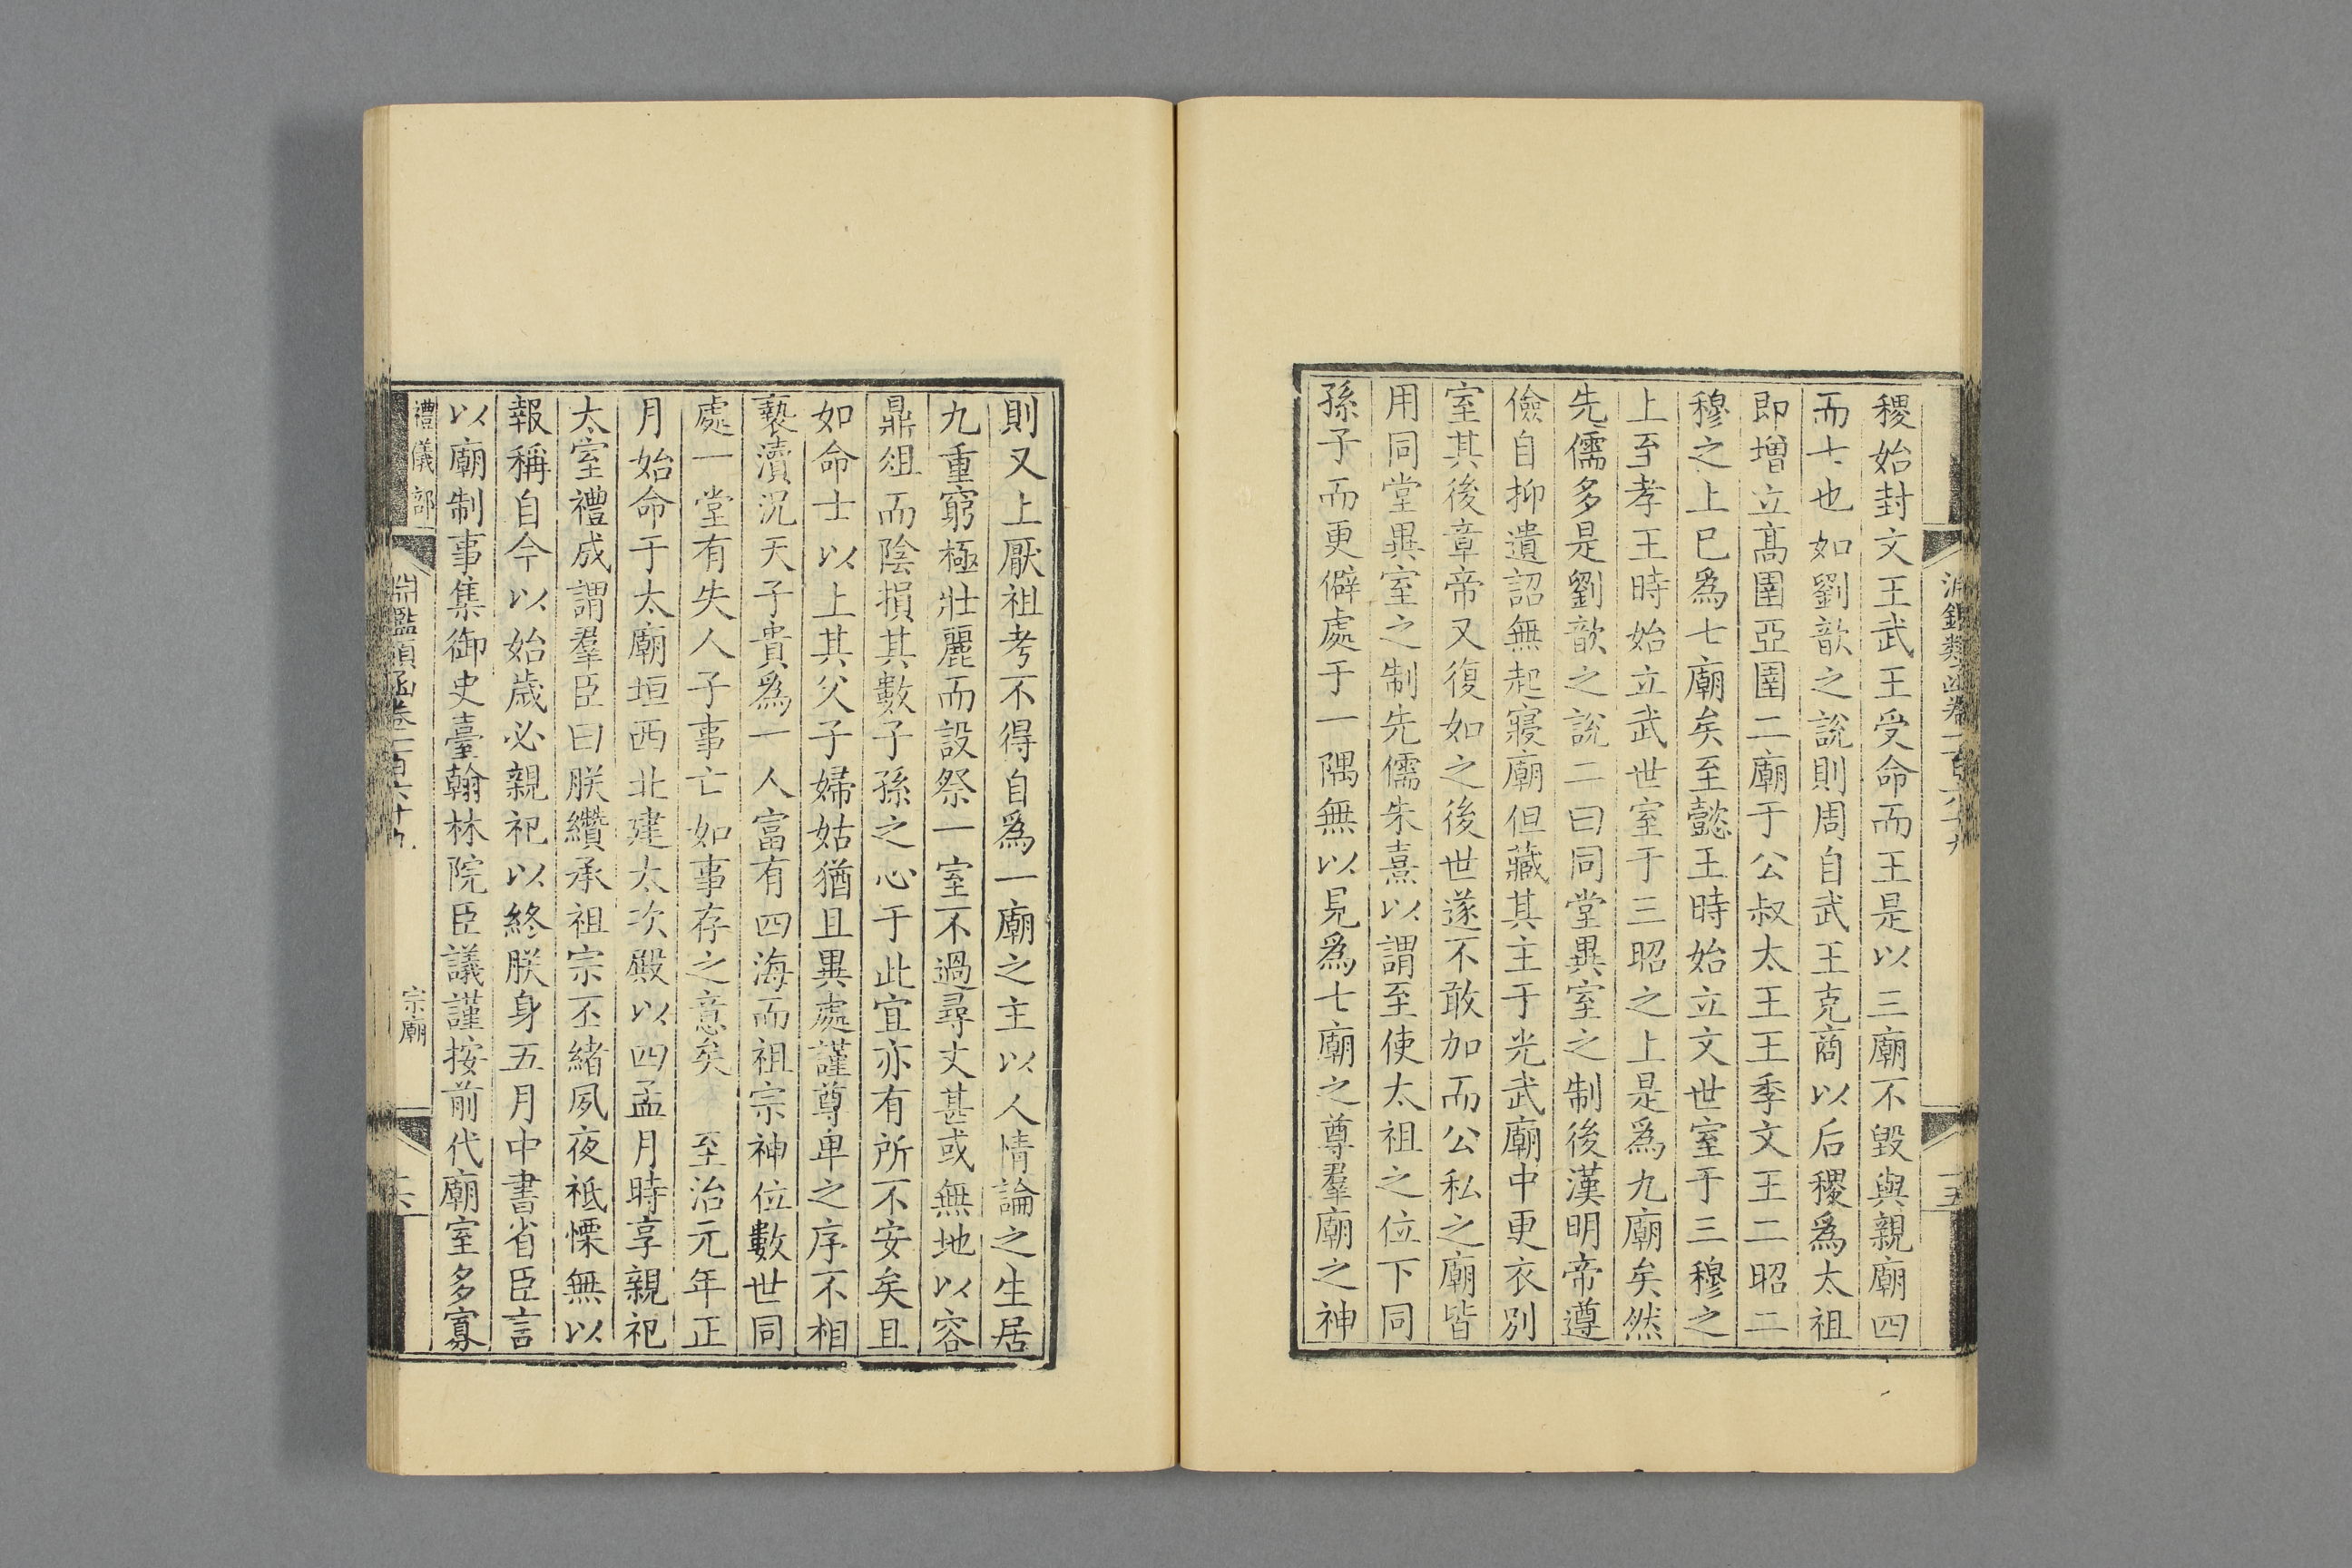 稷始封文王武王受命而王是以三廟不毀與親廟四
而七也如劉歆之說則周自武王克商以后稷爲太祖
即增立高圉亞圉二廟于公叔太王王季文王二昭二
穆之上已爲七廟矣至懿王時始立文世室于三穆之
上至孝王時始立武世室于三昭之上是爲九廟矣然
先儒多是劉歆之說二曰同堂異室之制後漢明帝遵
儉自抑遺詔無起寢廟但藏其主于光武廟中更衣別
室其後章帝又復如之後世遂不敢加而公私之廟皆
用同堂異室之制先儒朱熹以謂至使太祖之位下同
孫子而更僻處于一隅無以見爲七廟之尊羣廟之神
則又上厭祖考不得自爲一廟之主以人情論之生居
九重窮極壯麗而設祭一室不過尋丈甚或無地以容
鼎俎而陰損其數子孫之心于此宜亦有所不安矣且
如命士以上其父子婦姑猶且異處謹尊卑之序不相
褻瀆況天子貴爲一人富有四海而祖宗神位數世同
處一堂有失人子事亡如事存之意矣 至治元年正
月始命于太廟垣西北建太次殿以四孟月時享親祀
太室禮成謂羣臣曰朕纘承祖宗丕緒夙夜祗慄無以
報稱自今以始歲必親祀以終朕身五月中書省臣言
以廟制事集御史臺翰林院臣議謹按前代廟室多寡
禮儀部
淵鑑類函卷一百六十九
宗廟